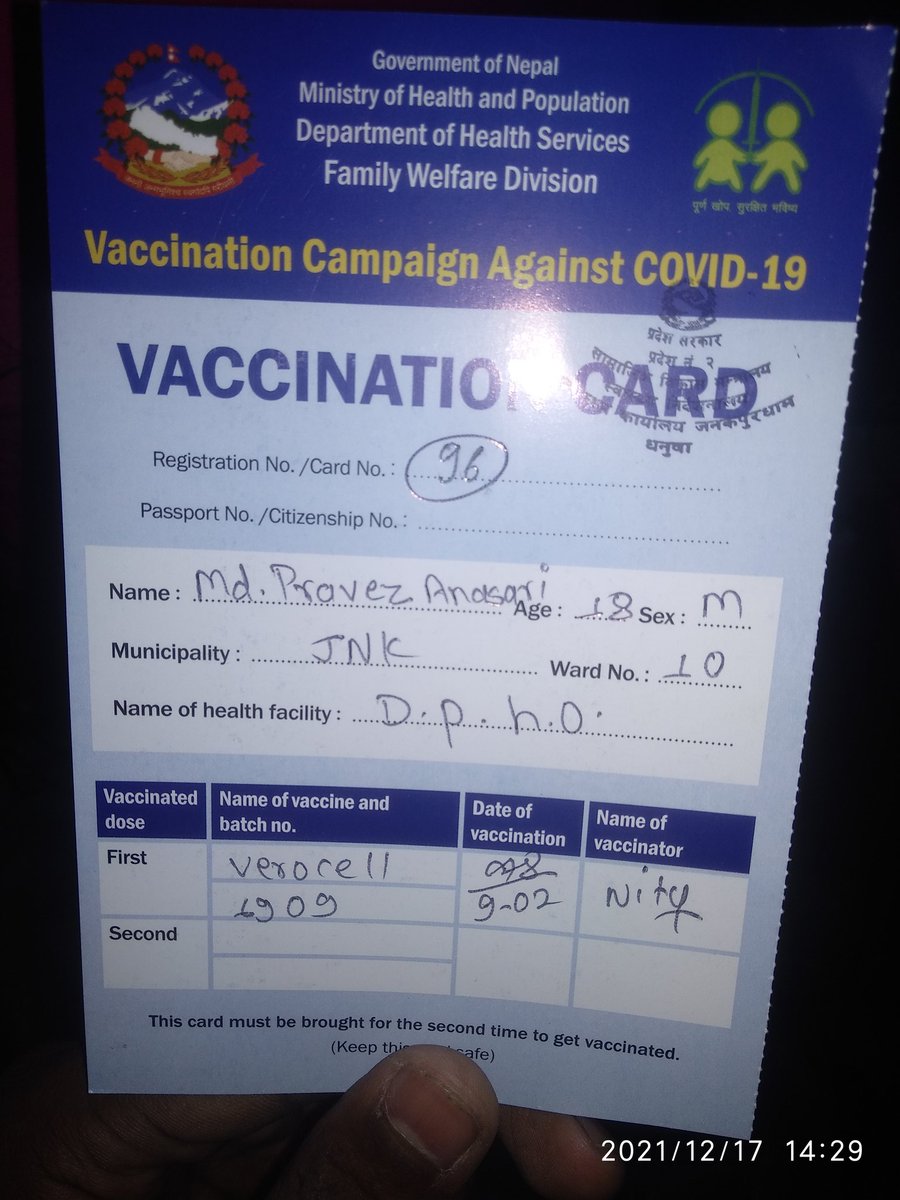 Government of Nepal
Ministry of Health and Population
Department of Health Services
Family Welfare Division
पूर्ण खोप सुरक्षित भविष्य
Vaccination Campaign Against COVID-19
प्रदेश सरकार
प्रदेश नं. २
सामाजिक विकास
कार्यालय जनकपुरधाम
धनुषा
VACCINATION CARD
Registration No. /Card No. : 96
Passport No. /Citizenship No. :
Name : Md. Pravez Anasari Age : 18 Sex : M
Municipality : JNK Ward No. : 10
Name of health facility : D.p.h.O.
Vaccinated dose Name of vaccine and batch no. Date of vaccination Name of vaccinator
First verocell 078 Nity
1909 9-02
Second
This card must be brought for the second time to get vaccinated.
(Keep this safe)
2021/12/17 14:29